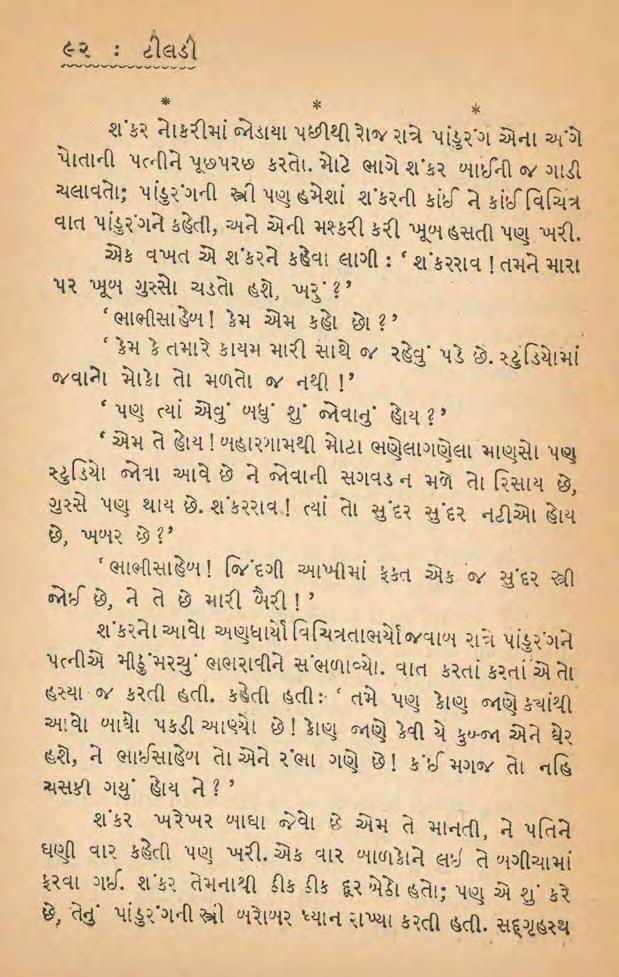 ૯૨ : ટીલડી
* * *
શંકર નોકરીમાં જોડાયા પછીથી રોજ રાત્રે પાંડુરંગ એના અંગે
પોતાની પત્નીને પૂછપરછ કરતો. મોટે ભાગે શંકર બાઈની જ ગાડી
ચલાવતો; પાંડુરંગની સ્ત્રી પણ હમેશાં શંકરની કાંઈ ને કાંઈ વિચિત્ર
વાત પાંડુરંગને કહેતી, અને એની મશ્કરી કરી ખૂબ હસતી પણ ખરી.
એક વખત એ શંકરને કહેવા લાગી : ‘ શંકરરાવ ! તમને મારા
પર ખૂબ ગુસ્સો ચડતો હશે, ખરું ? ’
‘ ભાભીસાહેબ! કેમ એમ કહો છો ? ’
‘ કેમ કે તમારે કાયમ મારી સાથે જ રહેવું પડે છે. સ્ટુડિયોમાં
જવાનો મોકો તો મળતો જ નથી !’
‘ પણ ત્યાં એવું બધું શું જોવાનું હોય ? ’
‘ એમ તે હોય ! બહારગામથી મોટા ભણેલાગણેલા માણસો પણ
સ્ટુડિયો જોવા આવે છે ને જોવાની સગવડ ન મળે તો રિસાય છે,
ગુસ્સે પણ થાય છે. શંકરરાવ ! ત્યાં તો સુંદર સુંદર નટીઓ હોય
છે, ખબર છે ?’
‘ ભાભીસાહેબ! જિંદગી આખીમાં ફક્ત એક જ સુંદર સ્ત્રી
જોઈ છે, ને તે છે મારી બૈરી ! ’
શંકરનો આવો અણધાર્યો વિચિત્રતાભર્યો જવાબ રાત્રે પાંડુરંગને
પત્નીએ મીઠુંમરચું ભભરાવીને સંભળાવ્યો. વાત કરતાં કરતાં એ તો
હસ્યા જ કરતી હતી. કહેતી હતી: ‘ તમે પણ કોણ જાણે ક્યાંથી
આવો બાઘો પકડી આણ્યો છે ! કોણ જાણે કેવી યે કુબ્જા એને ઘેર
હશે, ને ભાઈસાહેબ તો એને રંભા ગણે છે! કંઈ મગજ તો નહિ
ચસકી ગયું હોય ને ? ’
શંકર ખરેખર બાઘા જેવો છે એમ તે માનતી, ને પતિને
ઘણી વાર કહેતી પણ ખરી. એક વાર બાળકોને લઈ તે બગીચામાં
ફરવા ગઈ. શંકર તેમનાથી ઠીક ઠીક દૂર બેઠો હતો; પણ એ શું કરે
છે, તેનું પાંડુરંગની સ્ત્રી બરોબર ધ્યાન રાખ્યા કરતી હતી. સદ્ગૃહસ્થ